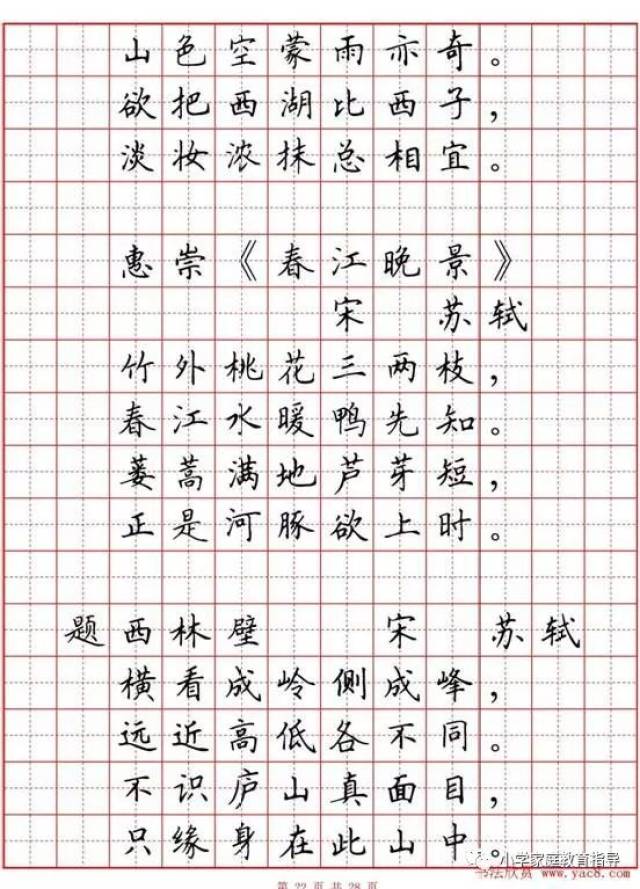 山色空蒙雨亦奇。
欲把西湖比西子，
淡妆浓抹总相宜。
惠崇《春江晚景》
宋 苏轼
竹外桃花三两枝，
春江水暖鸭先知。
蒌蒿满地芦芽短，
正是河豚欲上时。
题西林壁 宋 苏轼
横看成岭侧成峰，
远近高低各不同。
不识庐山真面目，
只缘身在此山中。
小学家庭教育指导
书法欣赏 www.yac8.com
第 22 页 共 28 页